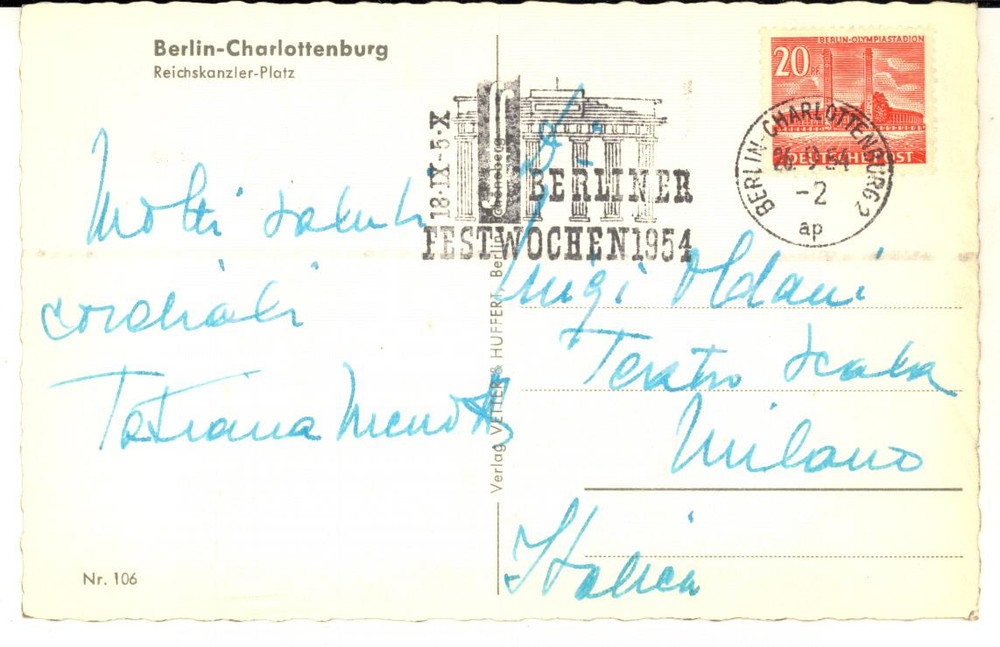 Berlin-Charlottenburg
Reichskanzler-Platz
Molti saluti
cordiali
Tatiana Menotti
Nr. 106
Verlag VETTER & HUFFERT, Berlin-Schöneberg
18·IX-5·X
BERLINER
FESTWOCHEN 1954
BERLIN-OLYMPIASTADION
20 PF
DEUTSCHE POST
BERLIN-CHARLOTTENBURG 2
26.9.54
-2
ap
Luigi Oldani
Teatro Scala
Milano
Italia